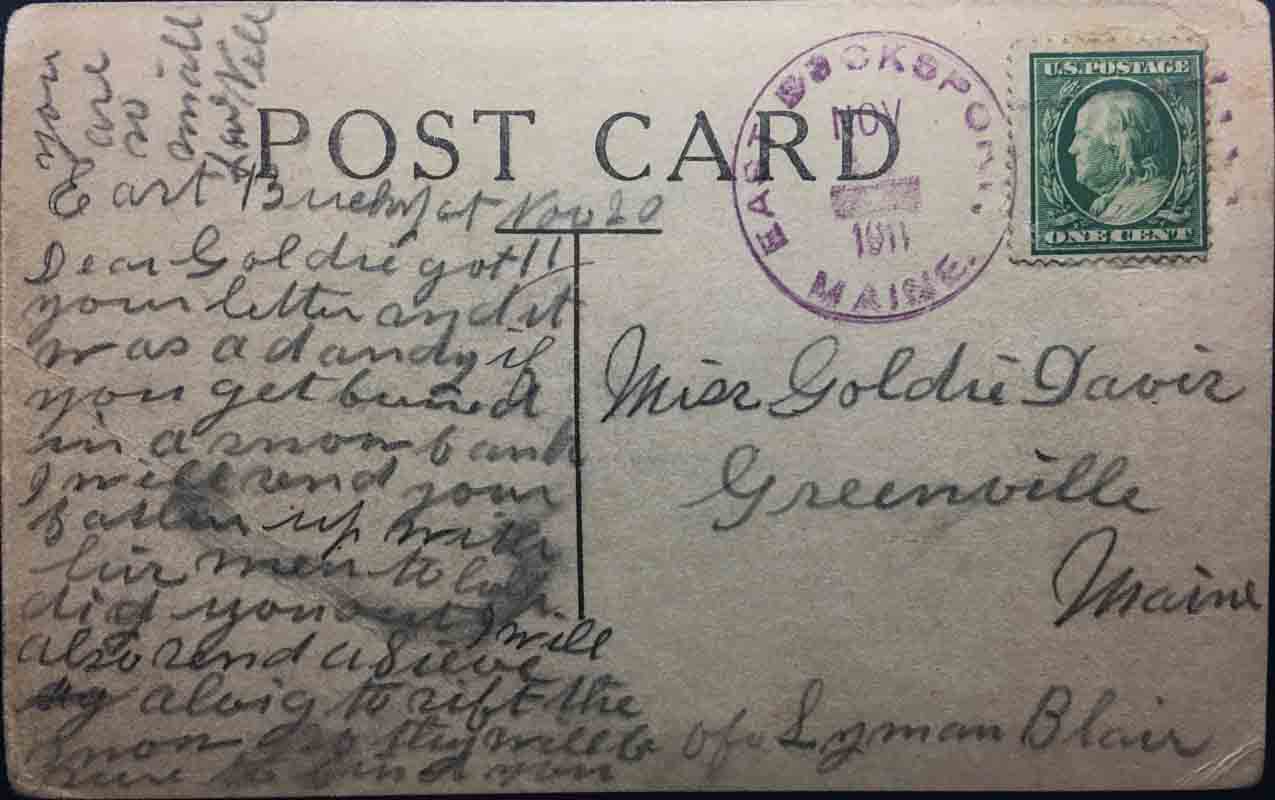 POST CARD
EAST BUCKSPORT.
NOV
1911
MAINE.
U.S. POSTAGE
ONE CENT
East Bucksport Nov 20
Dear Goldie got 11
your letter and it
was a dandy if
you get buried
in a snow bank
I will send your
father up with
his men to help
did you out I will
also send a sieve
along to sift the
snow so they will be
sure to find you
you
are
so
small
Love Nell
Miss Goldie Davis
Greenville
Maine
c/o Lyman Blair